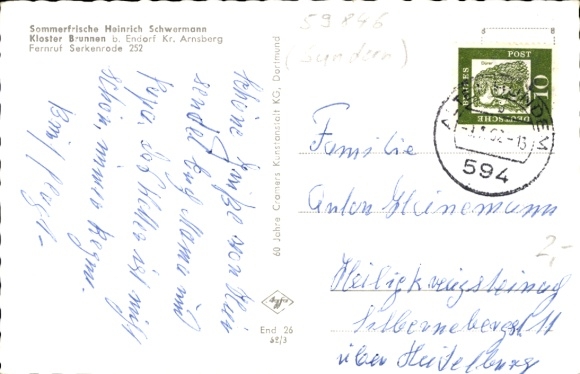 Sommerfrische Heinrich Schwermann
Kloster Brunnen b. Endorf Kr. Arnsberg
Fernruf Serkenrode 252
59846
(Sundern)
schöne Grüße von hier
sendet Euch Mama und
Papa, das Wetter ist nicht
schön, immer Regen.
60 Jahre Cramers Kunstanstalt KG, Dortmund
End 26
62/3
8
8
DEUTSCHE BUNDESPOST
Dürer
10
594
Familie
Anton Heinemann
Heiligkreuzsteinach
Silbernebergstr. 11
über Heidelberg
2,-